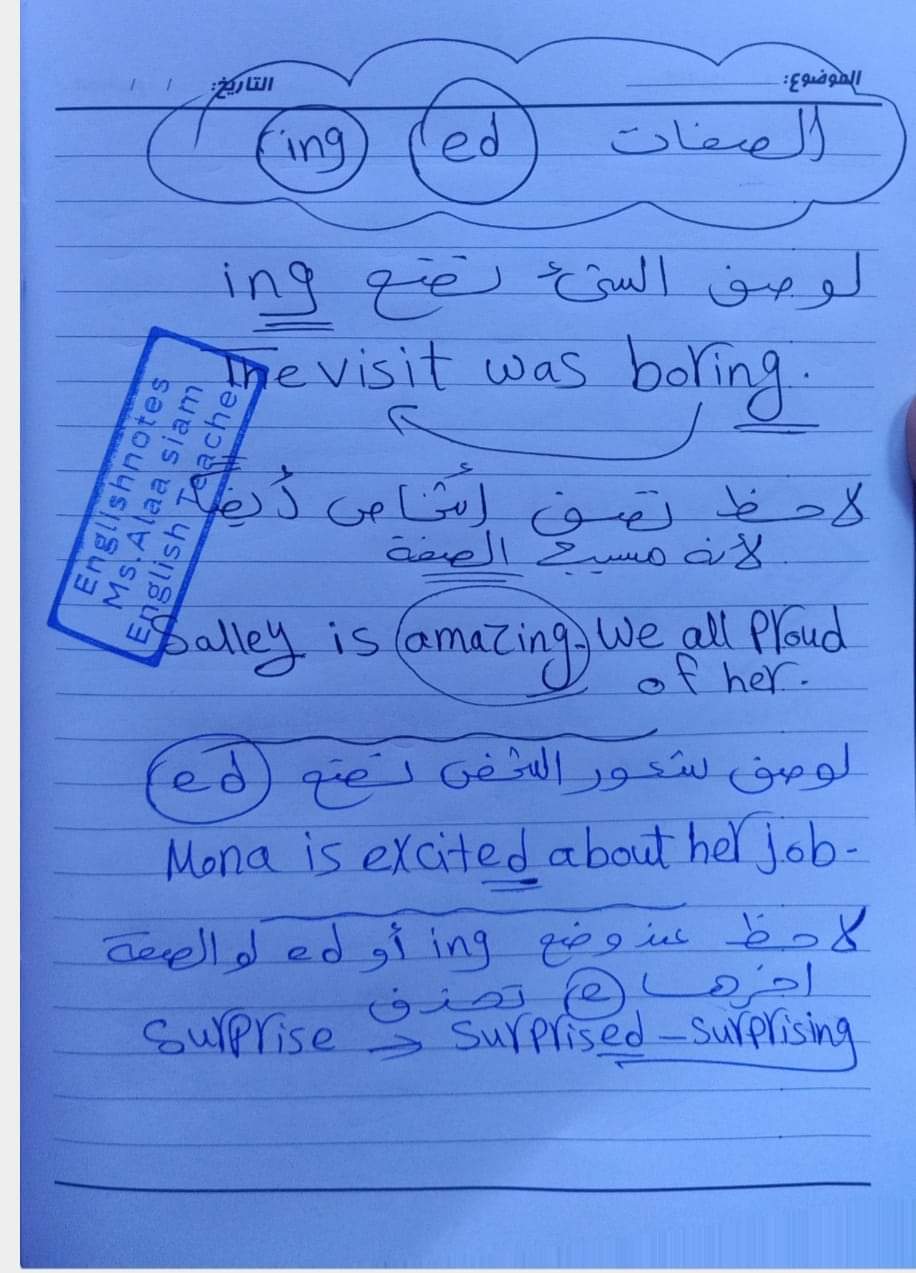 الموضوع: التاريخ: / /
الصفات ed ing
لوصف الشئ نضع ing
The visit was boring.
لاحظ نصف أشخاص أيضًا
لانه مسبح الصفة
Salley is amazing. We all Proud
of her.
لوصف شعور الشخص نضع ed
Mona is excited about her job.
لاحظ عند وضع ing أو ed لو الصفة
اخرها e تحذف
Surprise → Surprised - Surprising
Englishnotes
Ms.Alaa siam
English Teacher